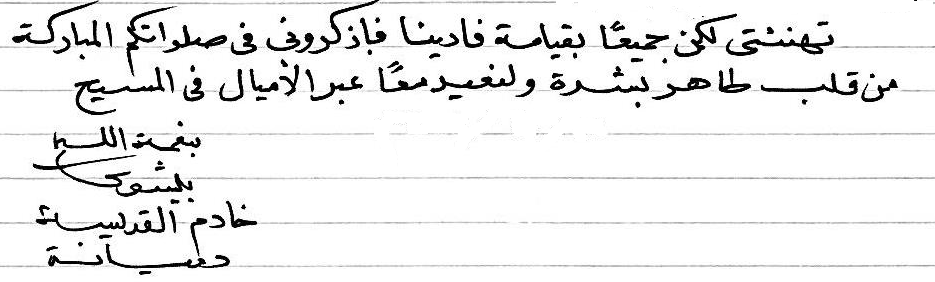 تهنئتى لكن جميعًا بقيامة فادينا فإذكرونى فى صلواتكم المباركة
من قلب طاهر بشدة ولنعيد معًا عبر الأميال فى المسيح
بنعمة الله
بيشوى
خادم القديسة
دميانة